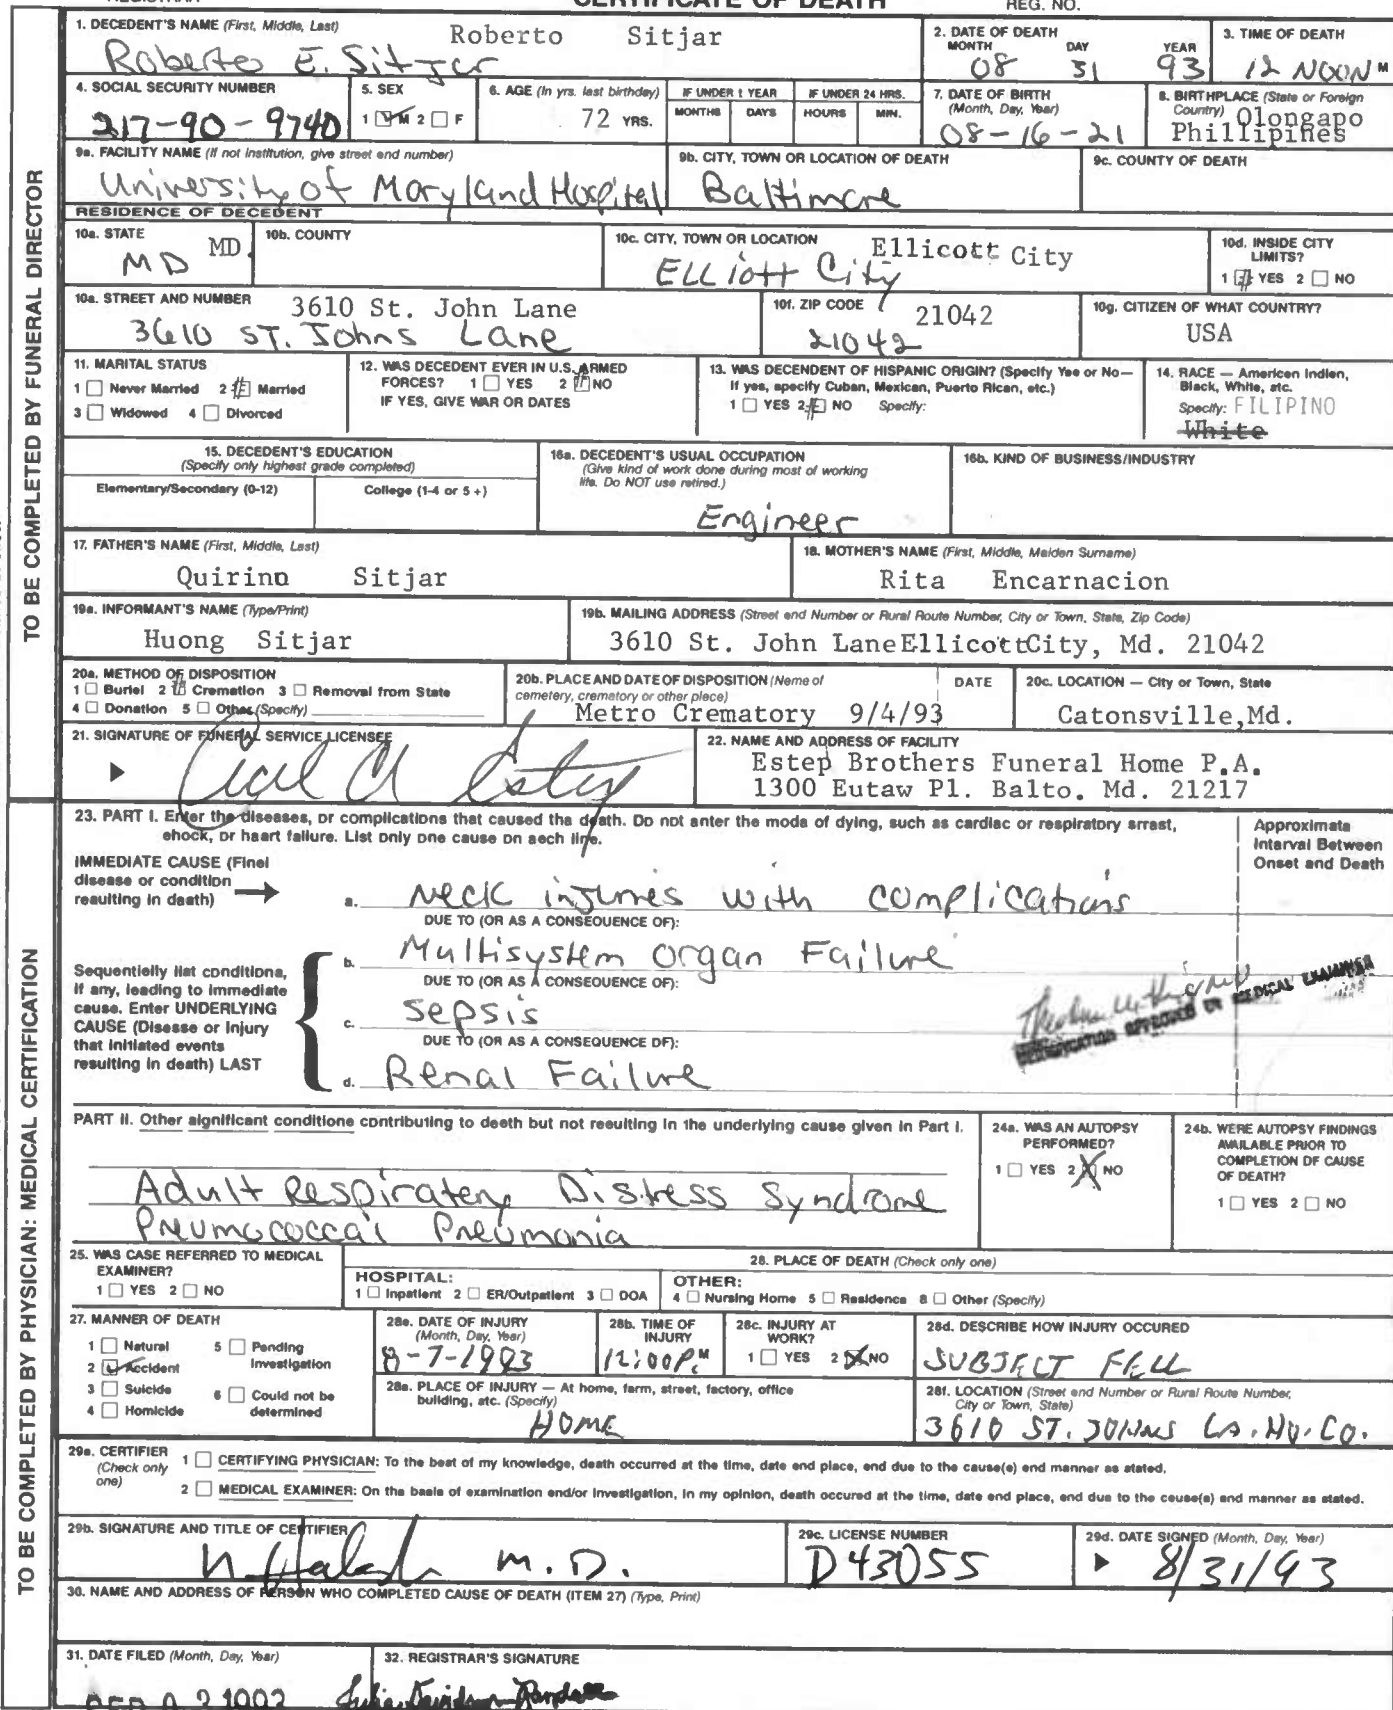 CERTIFICATE OF DEATH
REG. NO.
TO BE COMPLETED BY FUNERAL DIRECTOR
1. DECEDENT'S NAME (First, Middle, Last)
Roberto Sitjar
Roberto E. Sitjar
2. DATE OF DEATH
MONTH DAY YEAR
08 31 93
3. TIME OF DEATH
12 NOON M
4. SOCIAL SECURITY NUMBER
217-90-9740
5. SEX
1 M 2 F
6. AGE (In yrs. last birthday)
72 YRS.
IF UNDER 1 YEAR
MONTHS DAYS
IF UNDER 24 HRS.
HOURS MIN.
7. DATE OF BIRTH
(Month, Day, Year)
08-16-21
8. BIRTHPLACE (State or Foreign
Country) Olongapo
Phillipines
9a. FACILITY NAME (If not institution, give street and number)
University of Maryland Hospital
9b. CITY, TOWN OR LOCATION OF DEATH
Baltimore
9c. COUNTY OF DEATH
RESIDENCE OF DECEDENT
10a. STATE
MD.
MD
10b. COUNTY
10c. CITY, TOWN OR LOCATION
Ellicott City
ELLiott City
10d. INSIDE CITY
LIMITS?
1 YES 2 NO
10e. STREET AND NUMBER
3610 St. John Lane
3610 ST. Johns Lane
10f. ZIP CODE
21042
21042
10g. CITIZEN OF WHAT COUNTRY?
USA
11. MARITAL STATUS
1 Never Married 2 Married
3 Widowed 4 Divorced
12. WAS DECEDENT EVER IN U.S. ARMED
FORCES? 1 YES 2 NO
IF YES, GIVE WAR OR DATES
13. WAS DECENDENT OF HISPANIC ORIGIN? (Specify Yes or No—
If yes, specify Cuban, Mexican, Puerto Rican, etc.)
1 YES 2 NO Specify:
14. RACE — American Indian,
Black, White, etc.
Specify: FILIPINO
White
15. DECEDENT'S EDUCATION
(Specify only highest grade completed)
Elementary/Secondary (0-12) College (1-4 or 5 +)
16a. DECEDENT'S USUAL OCCUPATION
(Give kind of work done during most of working
life. Do NOT use retired.)
Engineer
16b. KIND OF BUSINESS/INDUSTRY
17. FATHER'S NAME (First, Middle, Last)
Quirino Sitjar
18. MOTHER'S NAME (First, Middle, Maiden Surname)
Rita Encarnacion
19a. INFORMANT'S NAME (Type/Print)
Huong Sitjar
19b. MAILING ADDRESS (Street and Number or Rural Route Number, City or Town, State, Zip Code)
3610 St. John Lane EllicottCity, Md. 21042
20a. METHOD OF DISPOSITION
1 Burial 2 Cremation 3 Removal from State
4 Donation 5 Other (Specify)
20b. PLACE AND DATE OF DISPOSITION (Name of
cemetery, crematory or other place)
DATE
Metro Crematory 9/4/93
20c. LOCATION — City or Town, State
Catonsville,Md.
21. SIGNATURE OF FUNERAL SERVICE LICENSEE
22. NAME AND ADDRESS OF FACILITY
Estep Brothers Funeral Home P.A.
1300 Eutaw Pl. Balto. Md. 21217
TO BE COMPLETED BY PHYSICIAN: MEDICAL CERTIFICATION
23. PART I. Enter the diseases, or complications that caused the death. Do not enter the mode of dying, such as cardiac or respiratory arrest,
shock, or heart failure. List only one cause on each line.
Approximate
Interval Between
Onset and Death
IMMEDIATE CAUSE (Final
disease or condition
resulting in death)
a. Neck injuries with complications
DUE TO (OR AS A CONSEQUENCE OF):
b. Multisystem Organ Failure
DUE TO (OR AS A CONSEQUENCE OF):
c. Sepsis
DUE TO (OR AS A CONSEQUENCE OF):
d. Renal Failure
Sequentially list conditions,
if any, leading to immediate
cause. Enter UNDERLYING
CAUSE (Disease or injury
that initiated events
resulting in death) LAST
APPROVED BY MEDICAL EXAMINER
PART II. Other significant conditions contributing to death but not resulting in the underlying cause given in Part I.
Adult Respiratory Distress Syndrome
Pneumococcal Pneumonia
24a. WAS AN AUTOPSY
PERFORMED?
1 YES 2 NO
24b. WERE AUTOPSY FINDINGS
AVAILABLE PRIOR TO
COMPLETION OF CAUSE
OF DEATH?
1 YES 2 NO
25. WAS CASE REFERRED TO MEDICAL
EXAMINER?
1 YES 2 NO
26. PLACE OF DEATH (Check only one)
HOSPITAL:
1 Inpatient 2 ER/Outpatient 3 DOA
OTHER:
4 Nursing Home 5 Residence 6 Other (Specify)
27. MANNER OF DEATH
1 Natural 5 Pending
2 Accident Investigation
3 Suicide 6 Could not be
4 Homicide determined
28a. DATE OF INJURY
(Month, Day, Year)
8-7-1993
28b. TIME OF
INJURY
12:00P.M
28c. INJURY AT
WORK?
1 YES 2 NO
28d. DESCRIBE HOW INJURY OCCURED
SUBJECT FELL
28e. PLACE OF INJURY — At home, farm, street, factory, office
building, etc. (Specify)
HOME
28f. LOCATION (Street and Number or Rural Route Number,
City or Town, State)
3610 ST. JOHNS LA. HO. CO.
29a. CERTIFIER
(Check only
one)
1 CERTIFYING PHYSICIAN: To the best of my knowledge, death occurred at the time, date and place, and due to the cause(s) and manner as stated.
2 MEDICAL EXAMINER: On the basis of examination and/or investigation, in my opinion, death occured at the time, date and place, and due to the cause(s) and manner as stated.
29b. SIGNATURE AND TITLE OF CERTIFIER
M.D.
29c. LICENSE NUMBER
D43055
29d. DATE SIGNED (Month, Day, Year)
8/31/93
30. NAME AND ADDRESS OF PERSON WHO COMPLETED CAUSE OF DEATH (ITEM 27) (Type, Print)
31. DATE FILED (Month, Day, Year)
32. REGISTRAR'S SIGNATURE